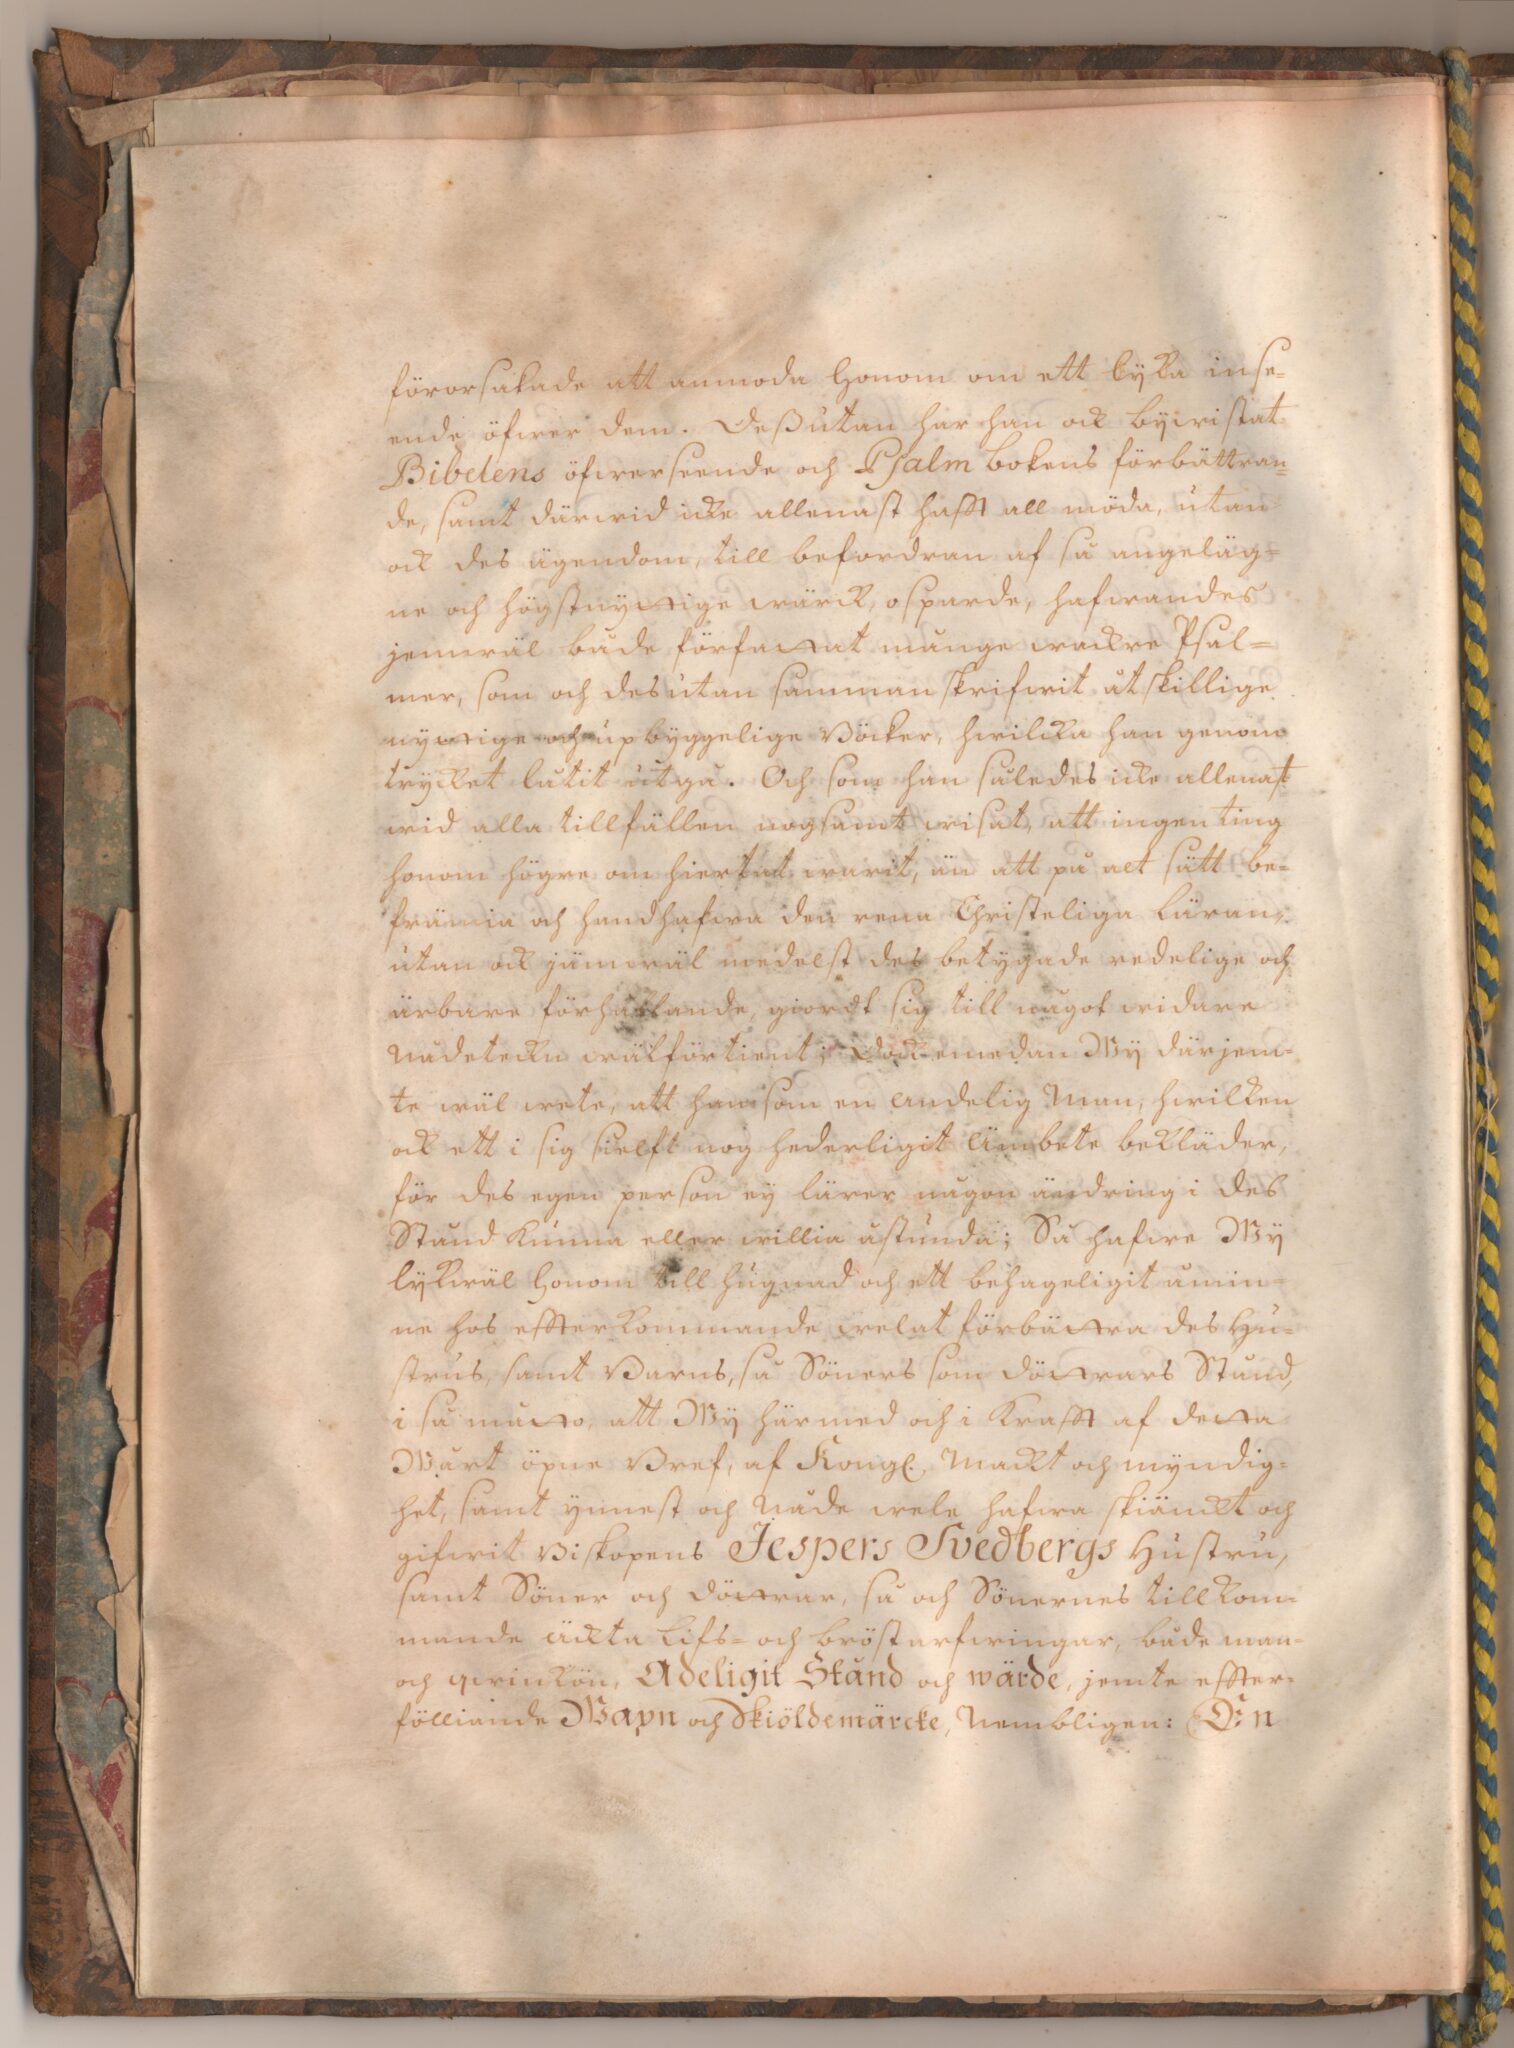 förorsakade att anmoda honom om ett lycka inse-
ende öfwer dem. Deßutan har han ock bywistat
Bibelens öfwerseende och Psalm bokens förbättran-
de, samt därwid icke allenast hafft all möda, utan
ock des ägendom, till befordran af så angeläg-
ne och högstnyttige wärck, osparde, hafwandes
jemwäl både författat månge wackre Psal-
mer, som och desutan samman skrifwit åtskillige
nyttige och upbyggelige Böcker, hwilcka han genom
trycket låtit utgå. Och som han således icke allenast
wid alla tillfällen nogsamt wisat, att ingenting
honom högre om hiertat warit, än att på alt sätt be-
främia och handhafwa den rena Christeliga Läran,
utan ock jämwäl medelst des betygade redelige och
ärbare förhållande, giordt sig till något widare
Nådeteckn wälförtient; Dock emedan Wy därjem-
te wäl wete, att han som en Andelig Man, hwilken
ock ett i sig sielft nog hederligit Ämbete bekläder,
för des egen person ey lärer någon ändring i des
Stånd kunna eller willia åstunda; Så hafwe Wy
lykwäl honom till hugnad och ett behageligit åmin-
ne hos effterkommande welat förbättra des Hu-
strus, samt Barns, så Söners som Döttrars Stånd,
i så måtto, att Wy härmed och i krafft af detta
Wårt öpne Bref, af Kongl. Mackt och myndig-
het, samt ynnest och Nåde wele hafwa skiänckt och
gifwit Biskopens Jespers Svedbergs Hustru,
samt Söner och Döttrar, så och Sönernes tillkom-
mande Äckta Lifs- och bröstarfwingar, både man-
och qwinkön, Adeligit Stånd och wärde, jemte effter-
fölliande Wapn och Skiöldemärcke, Nembligen: En